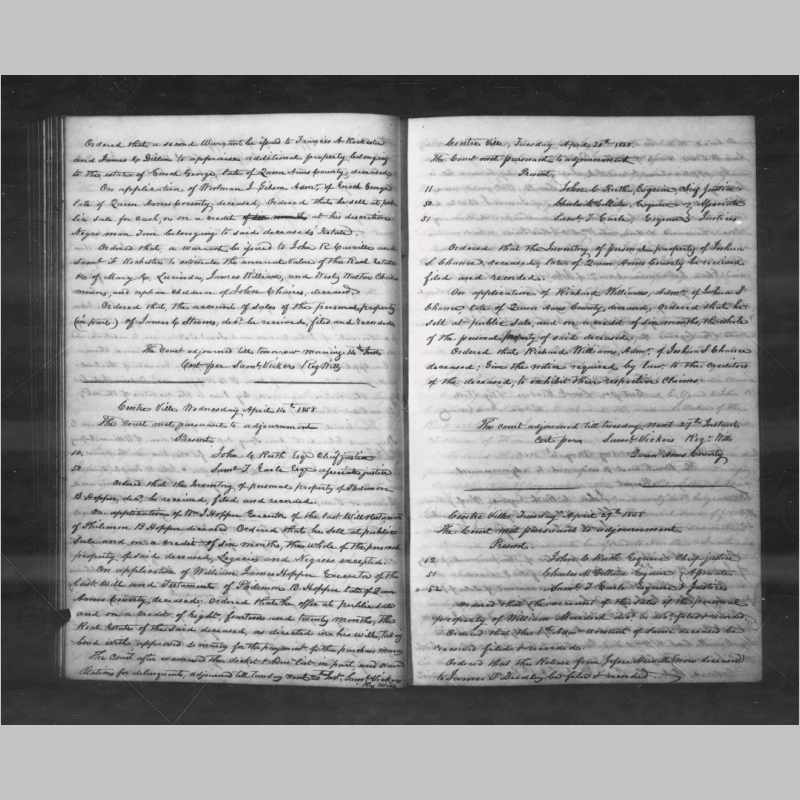 Ordered that a second Warrant be issued to Francis A. Rochester
and James C Dillin to appraise additional property belonging
to the estate of Enoch George, late of Queen Anns County, deceased.
On application of Woolman J. Gibson Admr. of Enoch George
late of Queen Annes County, deceased, Ordered that he sell at pub
lic sale for cash, or on a credit at his discretion
Negro man Tom belonging to said deceaseds Estate.
Ordered that, a warrant be issued to John R. and
Saml. T. to the annual value of the Real Estate
&c of Mary C, Lucinda, James William, and Walter Chaires
minors, and orphan children of John Chaires, deceased.
Ordered that, the account of sales of the personal property
(in part) of James C Stevens, decd. be received, filed and recorded
The Court adjourned till tomorrow morning 14th Inst.
Cert per Saml. Vickers Reg Wills
Centre Ville Wednesday April 14th 1858.
The Court met pursuant to adjournment
Present
John C Ruth Esq Chief justice
Saml. T. Earle Esq Associate justice
Ordered that the Inventory of personal property of Philemon
B Hopper, decd, be received, filed and recorded.
On application of Wm. J Hopper Executor of the last Will & Testament
of Philemon B Hopper deceased Ordered that he sell at public
Sale and on a credit of six months, the whole of the personal
property of said deceased, Legacies and Negroes excepted.
On application of William James Hopper Executor of the
last Will and Testament of Philemon B. Hopper late of Queen
Anns County, deceased; Ordered that he offer at public sale
and on a credit of Eight, fourteen and twenty months, the
Real Estate of the said deceased, as directed in his will, taking
bond with approved security for the payment of the purchase money
The Court after
adjourned till Tuesday next 20th Inst. Saml Vickers
Reg Wills
Centre Ville, Tuesday April 20th 1858.
The Court met pursuant to adjournment
Present,
11 John C Ruth, Esquire, Chief Justice
50 Esquire } Associate
51 Saml. T Earle, Esquire } Justices
Ordered that the Inventory of personal property of Joshua
S. Chance, deceased, late of Queen Anns County be received
filed and recorded.
On application of Richard Williams, Admr. of Joshua S.
Chance late of Queen Anns County deceased, Ordered that he
sell at public sale, and on a credit of six months, the whole
of the personal property of said deceased,
Ordered that Richard Williams, Admr. of Joshua S Chance
deceased, Give the notice required by law, to the creditors
of the deceased, to exhibit their respective Claims.
The court adjourned till tuesday next 27th Instant
Cert per Saml. Vickers Regr. Wills
Queen Anns County
Centre Ville Tuesday April 27th 1858
The Court met pursuant to adjournment
Present.
52 John C Ruth Esquire Chief justice
51 Esquire } Associate
52 Saml. T Earle Esquire } Justices
Ordered that the account of the sales of the personal
property of William decd be recd. filed & recorded
Ordered that the 1st Admr account of same deceased be
received filed & recorded.
Ordered that the Release from (now deceased)
to James P be filed & recorded